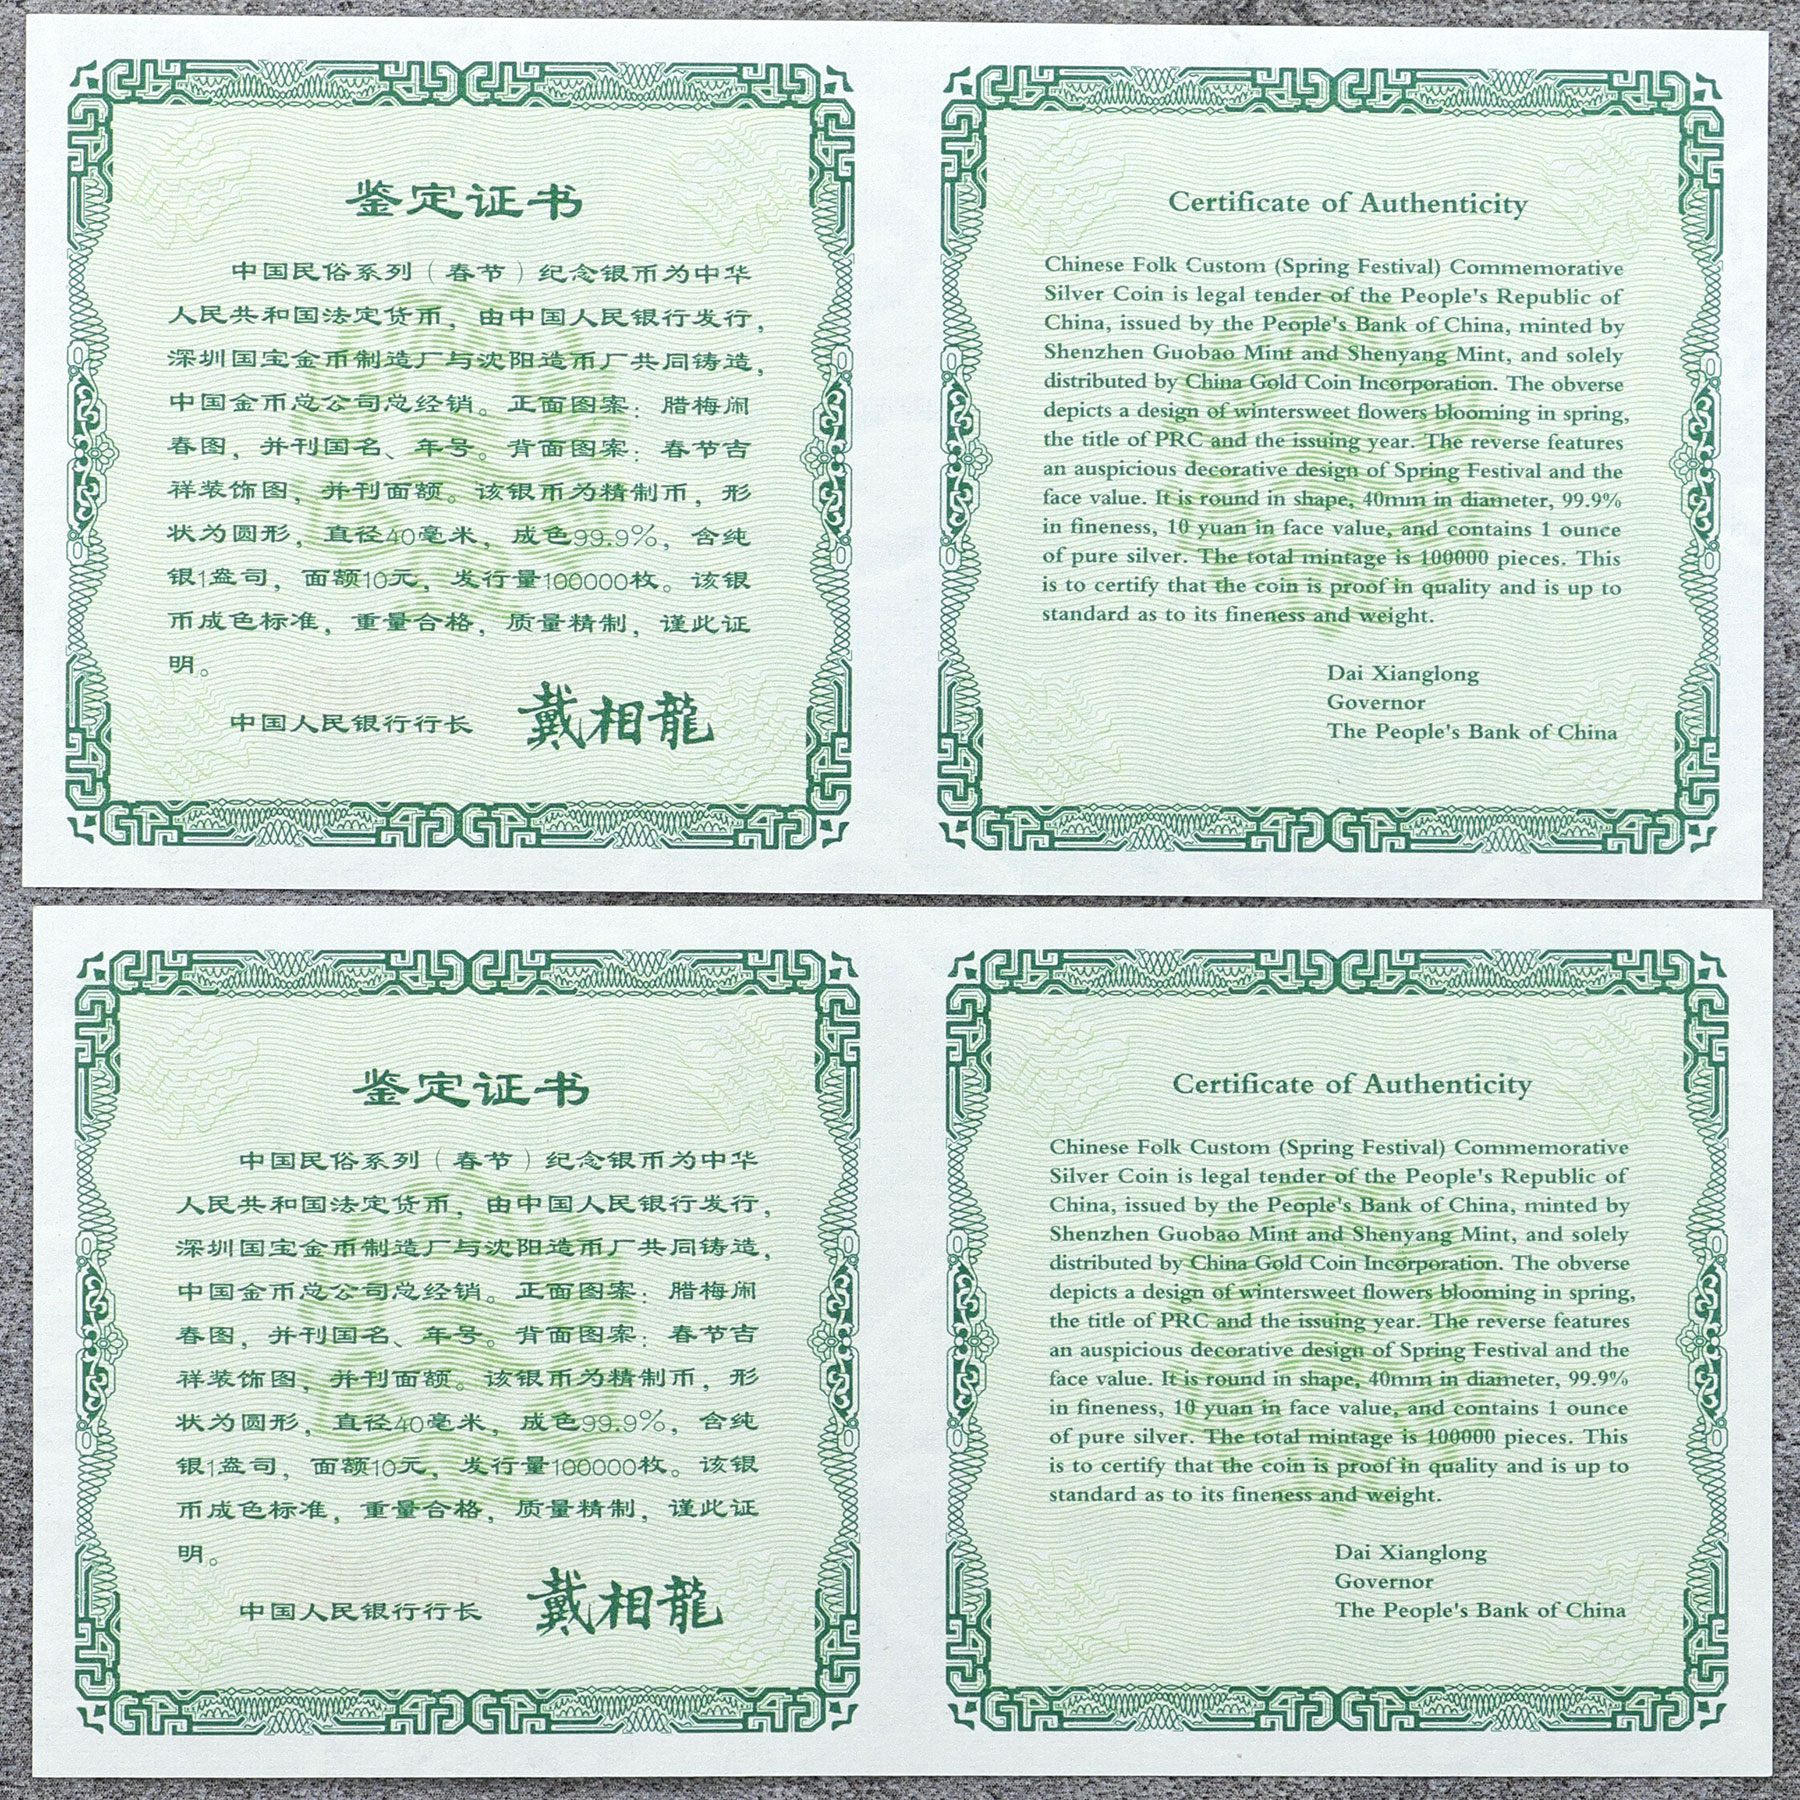 鉴定证书
中国民俗系列（春节）纪念银币为中华
人民共和国法定货币，由中国人民银行发行，
深圳国宝金币制造厂与沈阳造币厂共同铸造，
中国金币总公司总经销。正面图案：腊梅闹
春图，并刊国名、年号。背面图案：春节吉
祥装饰图，并刊面额。该银币为精制币，形
状为圆形，直径40毫米，成色99.9%，含纯
银1盎司，面额10元，发行量100000枚。该银
币成色标准，重量合格，质量精制，谨此证
明。
中国人民银行行长 戴相龍
Certificate of Authenticity
Chinese Folk Custom (Spring Festival) Commemorative
Silver Coin is legal tender of the People's Republic of
China, issued by the People's Bank of China, minted by
Shenzhen Guobao Mint and Shenyang Mint, and solely
distributed by China Gold Coin Incorporation. The obverse
depicts a design of wintersweet flowers blooming in spring,
the title of PRC and the issuing year. The reverse features
an auspicious decorative design of Spring Festival and the
face value. It is round in shape, 40mm in diameter, 99.9%
in fineness, 10 yuan in face value, and contains 1 ounce
of pure silver. The total mintage is 100000 pieces. This
is to certify that the coin is proof in quality and is up to
standard as to its fineness and weight.
Dai Xianglong
Governor
The People's Bank of China
鉴定证书
中国民俗系列（春节）纪念银币为中华
人民共和国法定货币，由中国人民银行发行，
深圳国宝金币制造厂与沈阳造币厂共同铸造，
中国金币总公司总经销。正面图案：腊梅闹
春图，并刊国名、年号。背面图案：春节吉
祥装饰图，并刊面额。该银币为精制币，形
状为圆形，直径40毫米，成色99.9%，含纯
银1盎司，面额10元，发行量100000枚。该银
币成色标准，重量合格，质量精制，谨此证
明。
中国人民银行行长 戴相龍
Certificate of Authenticity
Chinese Folk Custom (Spring Festival) Commemorative
Silver Coin is legal tender of the People's Republic of
China, issued by the People's Bank of China, minted by
Shenzhen Guobao Mint and Shenyang Mint, and solely
distributed by China Gold Coin Incorporation. The obverse
depicts a design of wintersweet flowers blooming in spring,
the title of PRC and the issuing year. The reverse features
an auspicious decorative design of Spring Festival and the
face value. It is round in shape, 40mm in diameter, 99.9%
in fineness, 10 yuan in face value, and contains 1 ounce
of pure silver. The total mintage is 100000 pieces. This
is to certify that the coin is proof in quality and is up to
standard as to its fineness and weight.
Dai Xianglong
Governor
The People's Bank of China